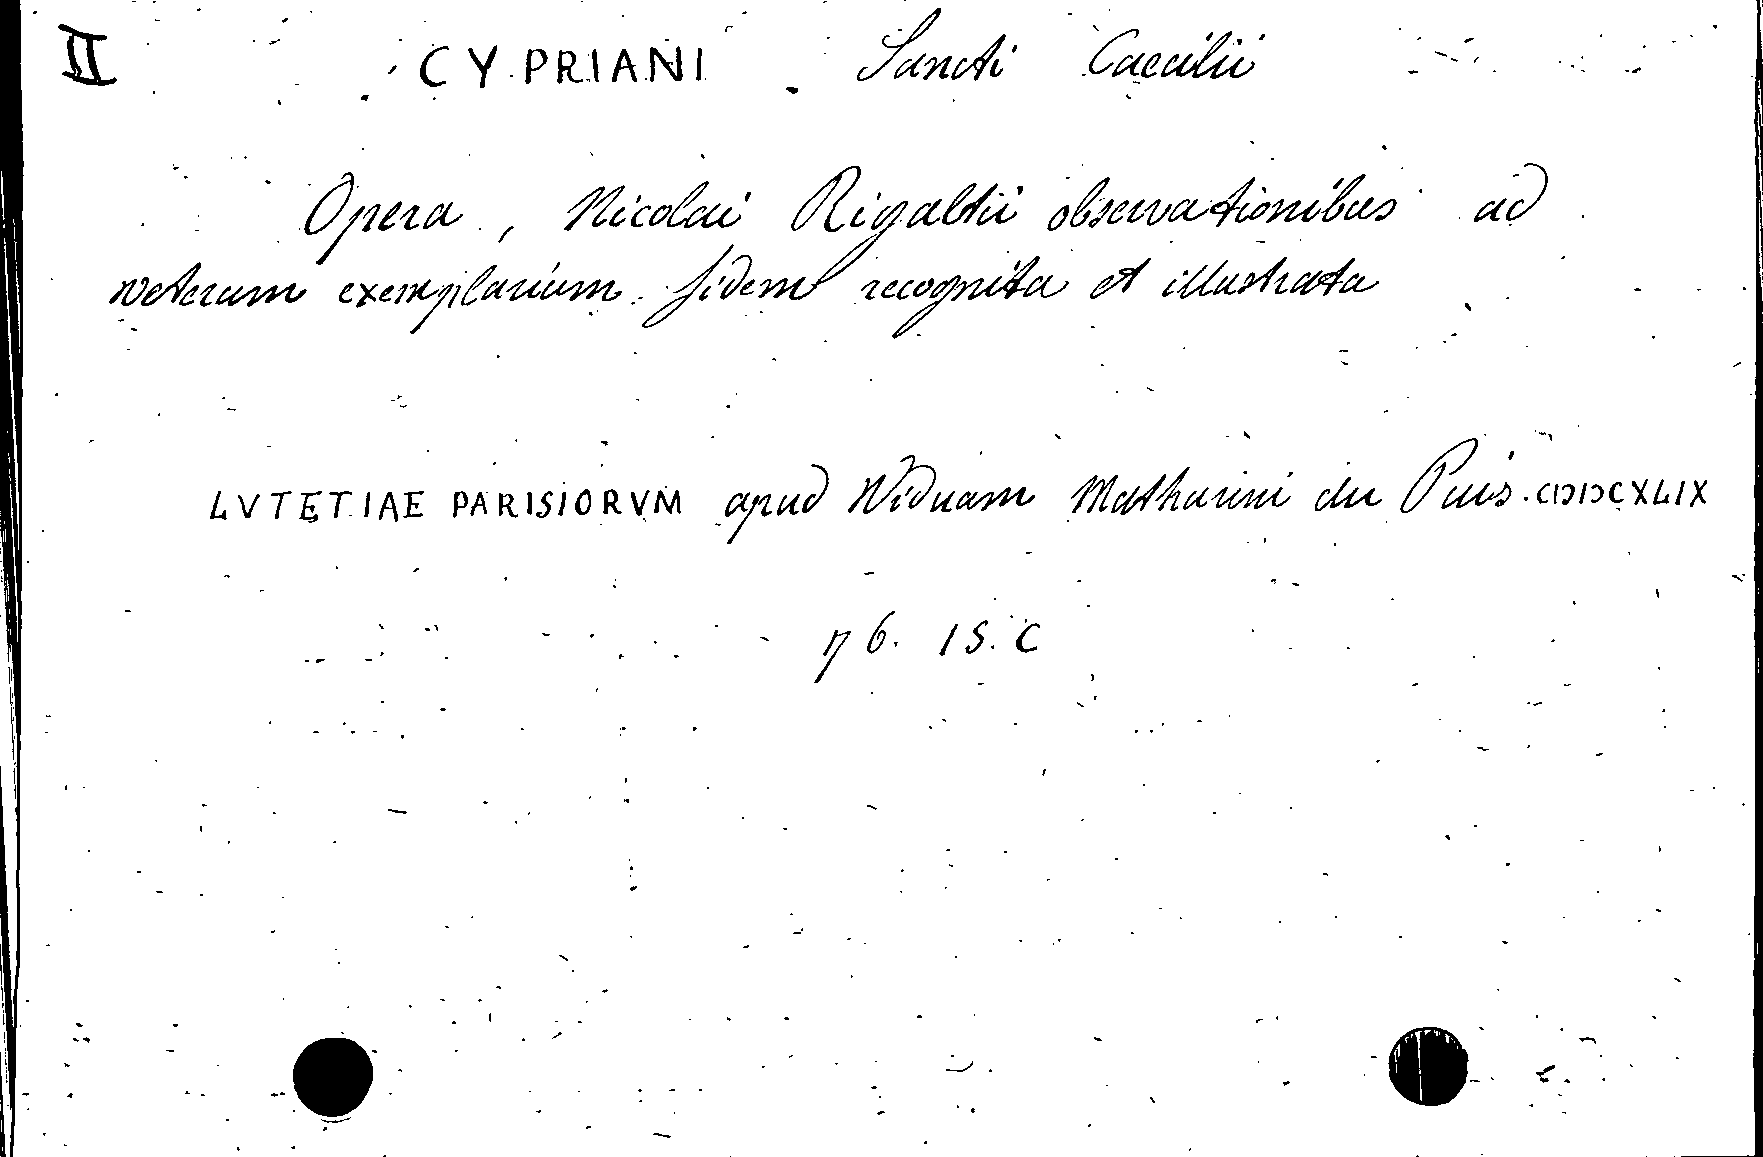 II CYPRIANI Sancti Caecilii
Opera, Nicolai Rigaltii observationibus ad
veterum exemplarium fidem recognita et illustrata
LVTETIAE PARISIORVM apud Viduam Mathurini du Puis. CIↃIↃCXLIX
η 6. 15. C